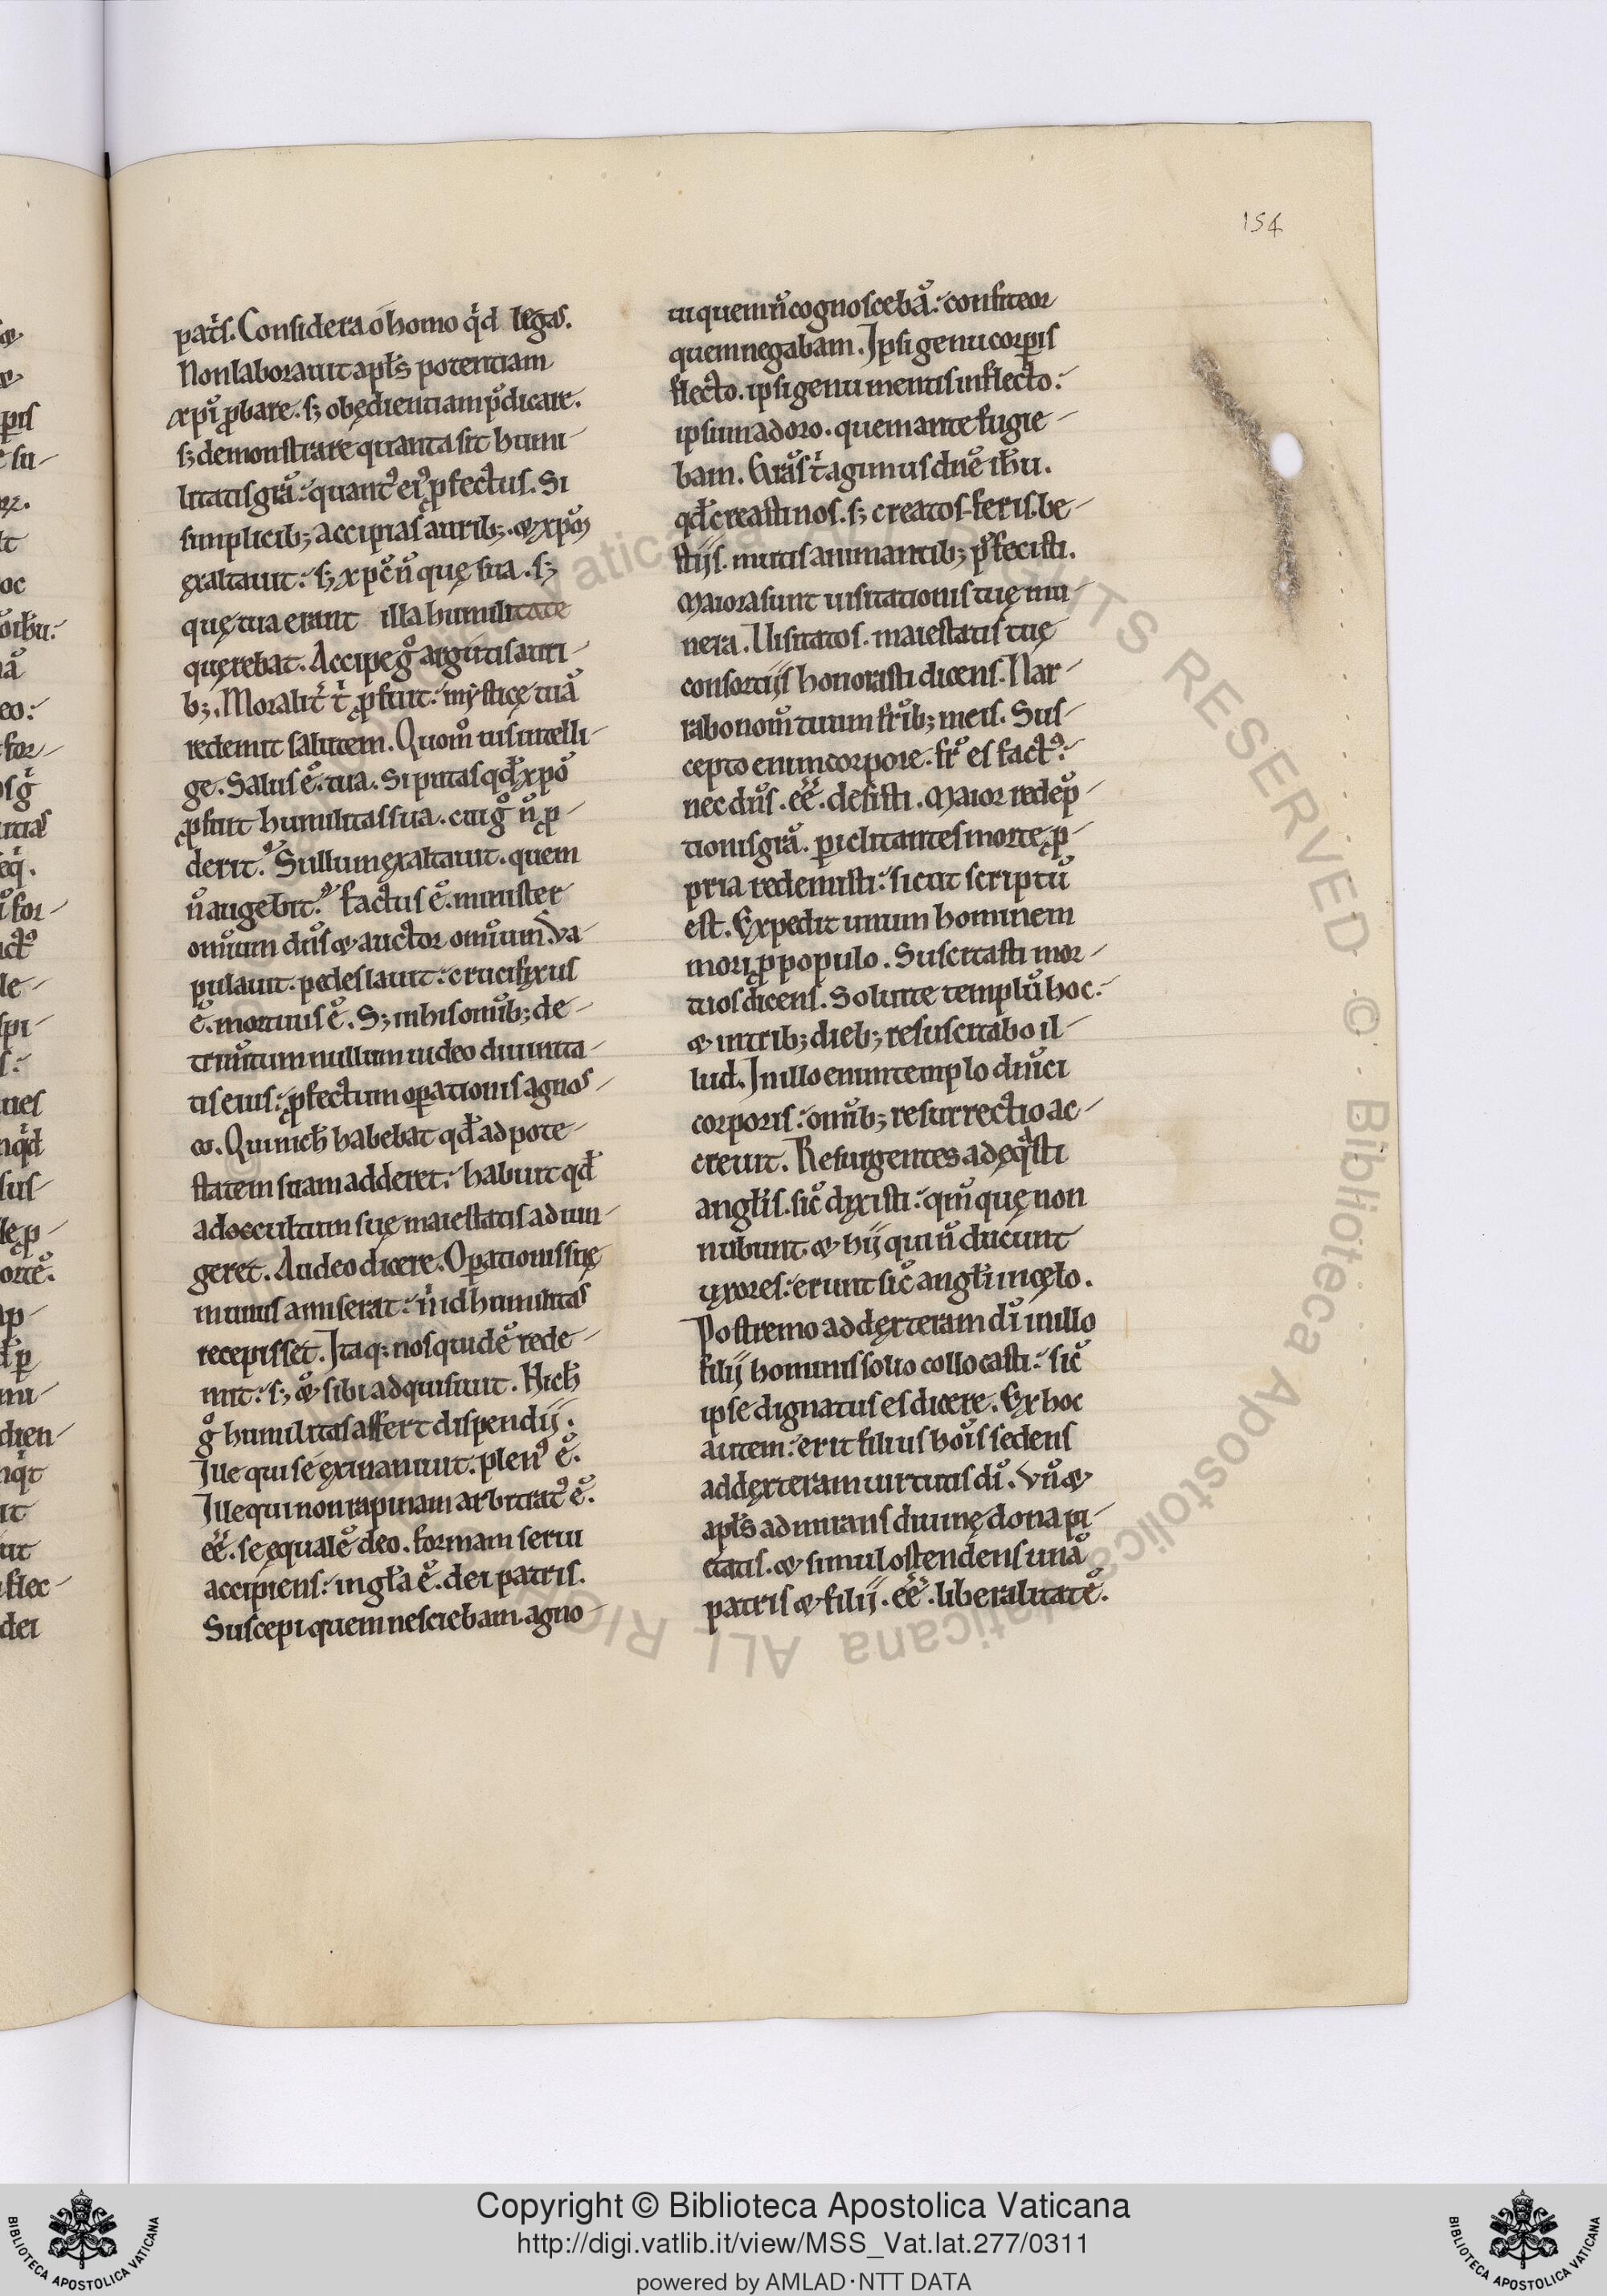 154
patͥs. Considera o homo qͥd legas.
Non laborauit apl̃s potentiam
xpͥ ꝓbare. sꝫ obędientiam p̃dicare.
sꝫ demonstrare quanta sit humi-
litatis gr̃a: quantꝰ eiꝰ ꝓfectus. Si
simplicibꝫ accipias auribꝫ. & xpm̃
ęxaltauit: sꝫ xpc̃ ñ quę sua. sꝫ
quę tua erant illa humilitate
quęrebat. Accipe gͦ argutis auri-
bꝫ. Moralit̃ tͥ ꝓfuit: mystice tuã
redemit salutem. Quom̃ uis intelli-
ge. Salus ẽ. tua. Si putas qd̃ xpõ
ꝓfuit humilitas sua. cui gͦ ñ ꝓ-
derit? Si illum ęxaltauit. quem
ñ augebit? Factus ẽ. minister
omĩum dñs & auctor omĩum. Va-
pulauit. pedes lauit: crucifixus
ẽ. mortuus ẽ. Sꝫ in his omĩbꝫ de-
trim̃tum nullum uideo diuinita-
tis eius: ꝓfectum oꝑationis agnos-
co. Qui nich̃ habebat qd̃ ad pote-
statem suam adderet: habuit qd̃
ad occultum suę maiestatis adiun-
geret. Audeo dicere. Oꝑationis suę
munus amiserat: ñ id humilitas
recepisset. Itaqꝫ nos quidẽ rede-
mit: sꝫ & sibi adquisiuit. Nich̃
gͦ humilitas affert dispendij.
Ille qui se ęxinaniuit. plenꝰ ẽ.
Ille qui non rapinam arbitratꝰ ẽ.
eẽ. se ęqualẽ deo. formam serui
accipiens: in gl̃a ẽ. dei patris.
Suscepi quem nesciebam. agno-
ui quem ñ cognoscebã: confiteor
quem negabam. Ipsi genu corꝑis
flecto. ipsi genu mentis inflecto:
ipsum adoro. quem ante fugie-
bam. Gr̃as tͥ agimus dñe ih̃u.
qd̃ creasti nos. sꝫ creatos feris. be-
stijs. mutis animantibꝫ p̃fecisti.
Maiora sunt uisitationis tuę mu-
nera. Uisitatos. maiestatis tuę
consortijs honorasti dicens. Nar-
rabo nom̃ tuum fr̃ibꝫ meis. Sus-
cepto enim corpore. fr̃ es factꝰ:
nec dñs. eẽ. desisti. Maior redẽp-
tionis gr̃a. ꝑiclitantes morte ꝓ-
pria redemisti: sicut scriptũ
est. Expedit unum hominem
mori ꝓ populo. Suscitasti mor-
tuos dicens. Soluite templũ hoc:
& in tribꝫ diebꝫ resuscitabo il-
lud. In illo enim templo diuĩci
corporis: omĩbꝫ resurrectio ac-
creuit. Resurgentes adęqͣsti
angl̃is. sic̃ dixisti: qm̃ quę non
nubunt. & hij qui ñ ducunt
uxores: erunt sic̃ angl̃i in cęlo.
Postremo ad dęxteram dĩ in illo
filij hominis solio collocasti: sic̃
ipse dignatus es dicere. Ex hoc
autem: erit filius hoĩs sedens
ad dęxteram uirtutis dĩ. Vñ &
apl̃s admirans diuinę dona pi-
etatis. & simul ostendens unã
patris & filij. eẽ. liberalitatẽ.
Copyright © Biblioteca Apostolica Vaticana
http://digi.vatlib.it/view/MSS_Vat.lat.277/0311
powered by AMLAD·NTT DATA